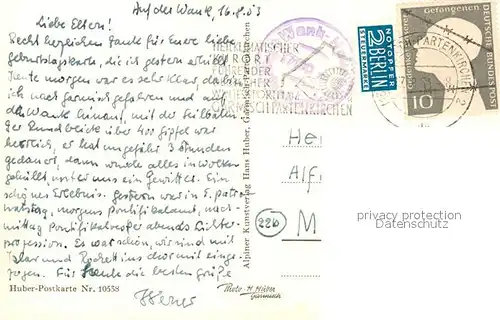 Auf der Wank, 16.8.53
Liebe Eltern!
Recht herzlichen Dank für Eure liebe
Geburtstagskarte, die ich gestern erhielt.
Heute morgen war es sehr klar, da bin
ich nach Garmisch gefahren und auf
den Wank hinauf, mit der Seilbahn.
Der Rundblick über 400 Gipfel war
herrlich, er hat ungefähr 3 Stunden
gedauert, dann wurde alles in Wolken
gehüllt, unter uns ein Gewitter. Ein
schönes Erlebnis. Gestern war in
morgens Pontifikalamt, nach-
mittag Pontifikalvesper abends Lichter-
prozession. Es war schön, wir sind mit
Talar und Rochett ins Chor mit einge-
zogen. Für heute die besten Grüße
Huber-Postkarte Nr. 10558
Alpiner Kunstverlag Hans Huber, Garmisch-Partenkirchen
HEILKLIMATISCHER
KURORT
FÜHRENDER
WINTERSPORTPLATZ
GARMISCH-PARTENKIRCHEN
Wank
NOTOPFER
2 BERLIN
STEUERMARKE
Gedenket unserer Gefangenen
DEUTSCHE BUNDESPOST
10
PARTENKIRCHEN 2
He
Alf
(22b) M
Photo H. Huber
Garmisch
privacy protection
Datenschutz